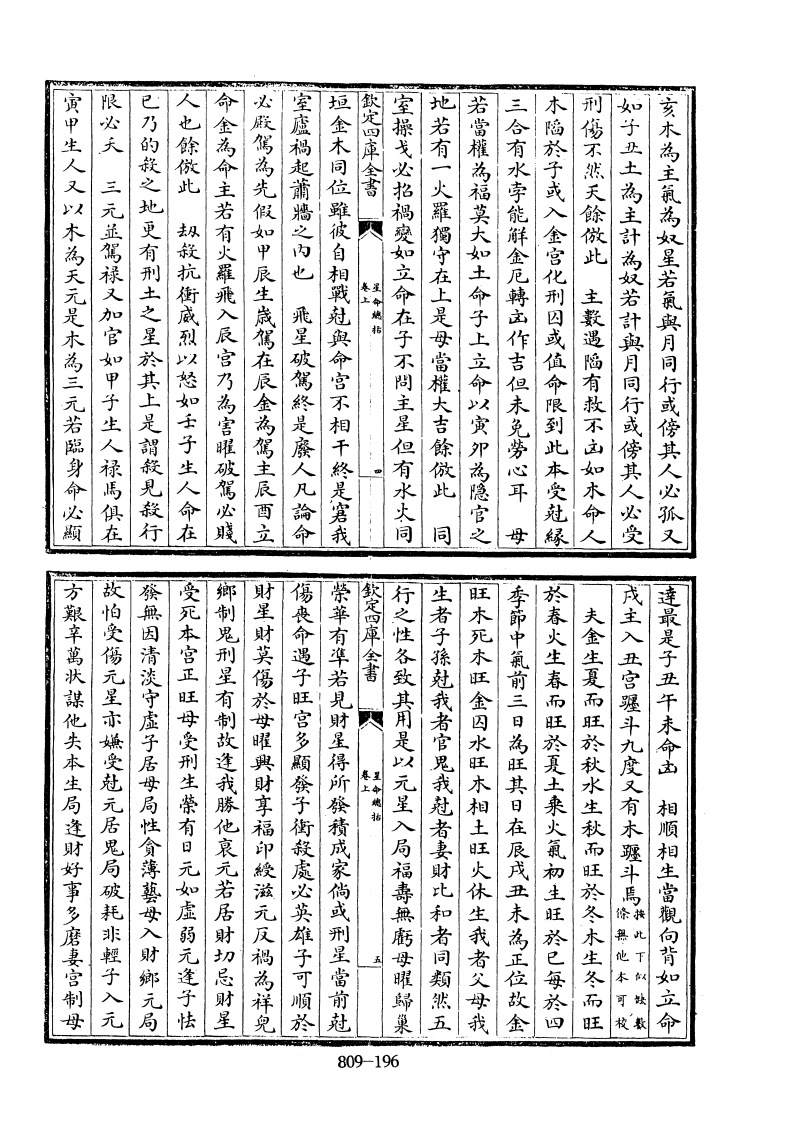 亥木為主氣為奴星若氣與月同行或傍其人必孤又
如子丑土為主計為奴若計與月同行或傍其人必受
刑傷不然夭餘倣此　主數遇陥有救不凶如木命人
木陥於子或入金宮化刑囚或值命限到此本受尅縁
三合有水孛能解金厄轉凶作吉但未免勞心耳　母
若當權為福莫大如土命子上立命以寅卯為隠官之
地若有一火羅獨守在上是母當權大吉餘倣此　同
室操戈必招禍變如立命在子不問主星但有水火同
欽定四庫全書
星命總括
卷上
四
垣金木同位雖彼自相戰尅與命宮不相干終是窘我
室廬禍起蕭牆之内也　飛星破駕終是廢人凡論命
必殿駕為先假如甲辰生歲駕在辰金為駕主辰酉立
命金為命主若有火羅飛入辰宮乃為害曜破駕必賤
人也餘倣此　刼殺抗衝威烈以怒如壬子生人命在
巳乃的殺之地更有刑土之星於其上是謂殺見殺行
限必夭　三元並駕禄又加官如甲子生人禄馬俱在
寅甲生人又以木為天元是木為三元若臨身命必顯
達最是子丑午未命凶　相順相生當觀向背如立命
戌主入丑宮躔斗九度又有木躔斗焉按此下似缺數條無他本可校
夫金生夏而旺於秋水生秋而旺於冬木生冬而旺
於春火生春而旺於夏土乘火氣初生旺於巳每於四
季節中氣前三日為旺其日在辰戌丑未為正位故金
旺木死木旺金囚水旺木相土旺火休生我者父母我
生者子孫尅我者官鬼我尅者妻財比和者同類然五
行之性各致其用是以元星入局福壽無虧母曜歸巢
欽定四庫全書
星命總括
卷上
五
榮華有準若見財星得所發積成家倘或刑星當前尅
傷喪命遇子旺宮多顯發子衝殺處必英雄子可順於
財星財莫傷於母曜興財享福印綬滋元反禍為祥兒
鄉制鬼刑星有制故逢我勝他衰元若居財切忌財星
受死本宮正旺母受刑生榮有日元如虛弱元逢子怯
發無因清淡守虛子居母局性貪薄藝母入財鄉元局
故怕受傷元星亦嫌受尅元居鬼局破耗非輕子入元
方艱辛萬狀謀他失本生局逢財好事多磨妻宮制母
809-196